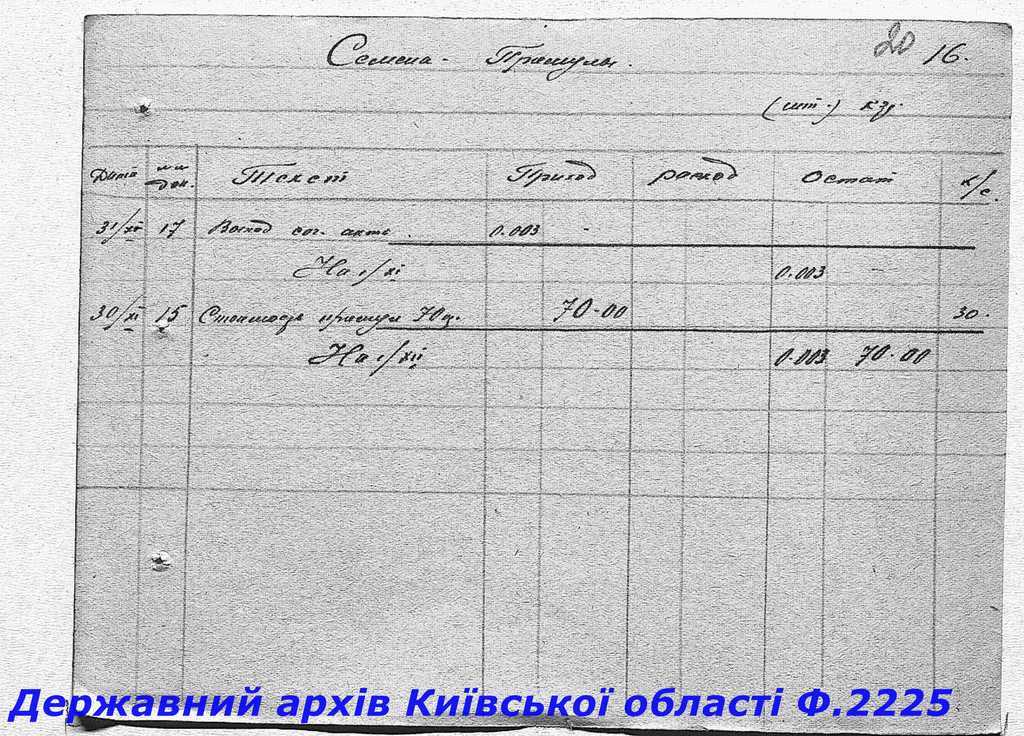 20 16.
Семена - Примулы.
(шт.) кгр.
Дата № док. Текст Приход расход Остат к/с.
31/XI 17 Восход сог. акта. 0.003 -
На 1/XI 0.003 -
30/XI 15 Стоимость примул 70 ц. 70-00 30.
На 1/XII 0.003 70-00
Державний архів Київської області Ф.2225